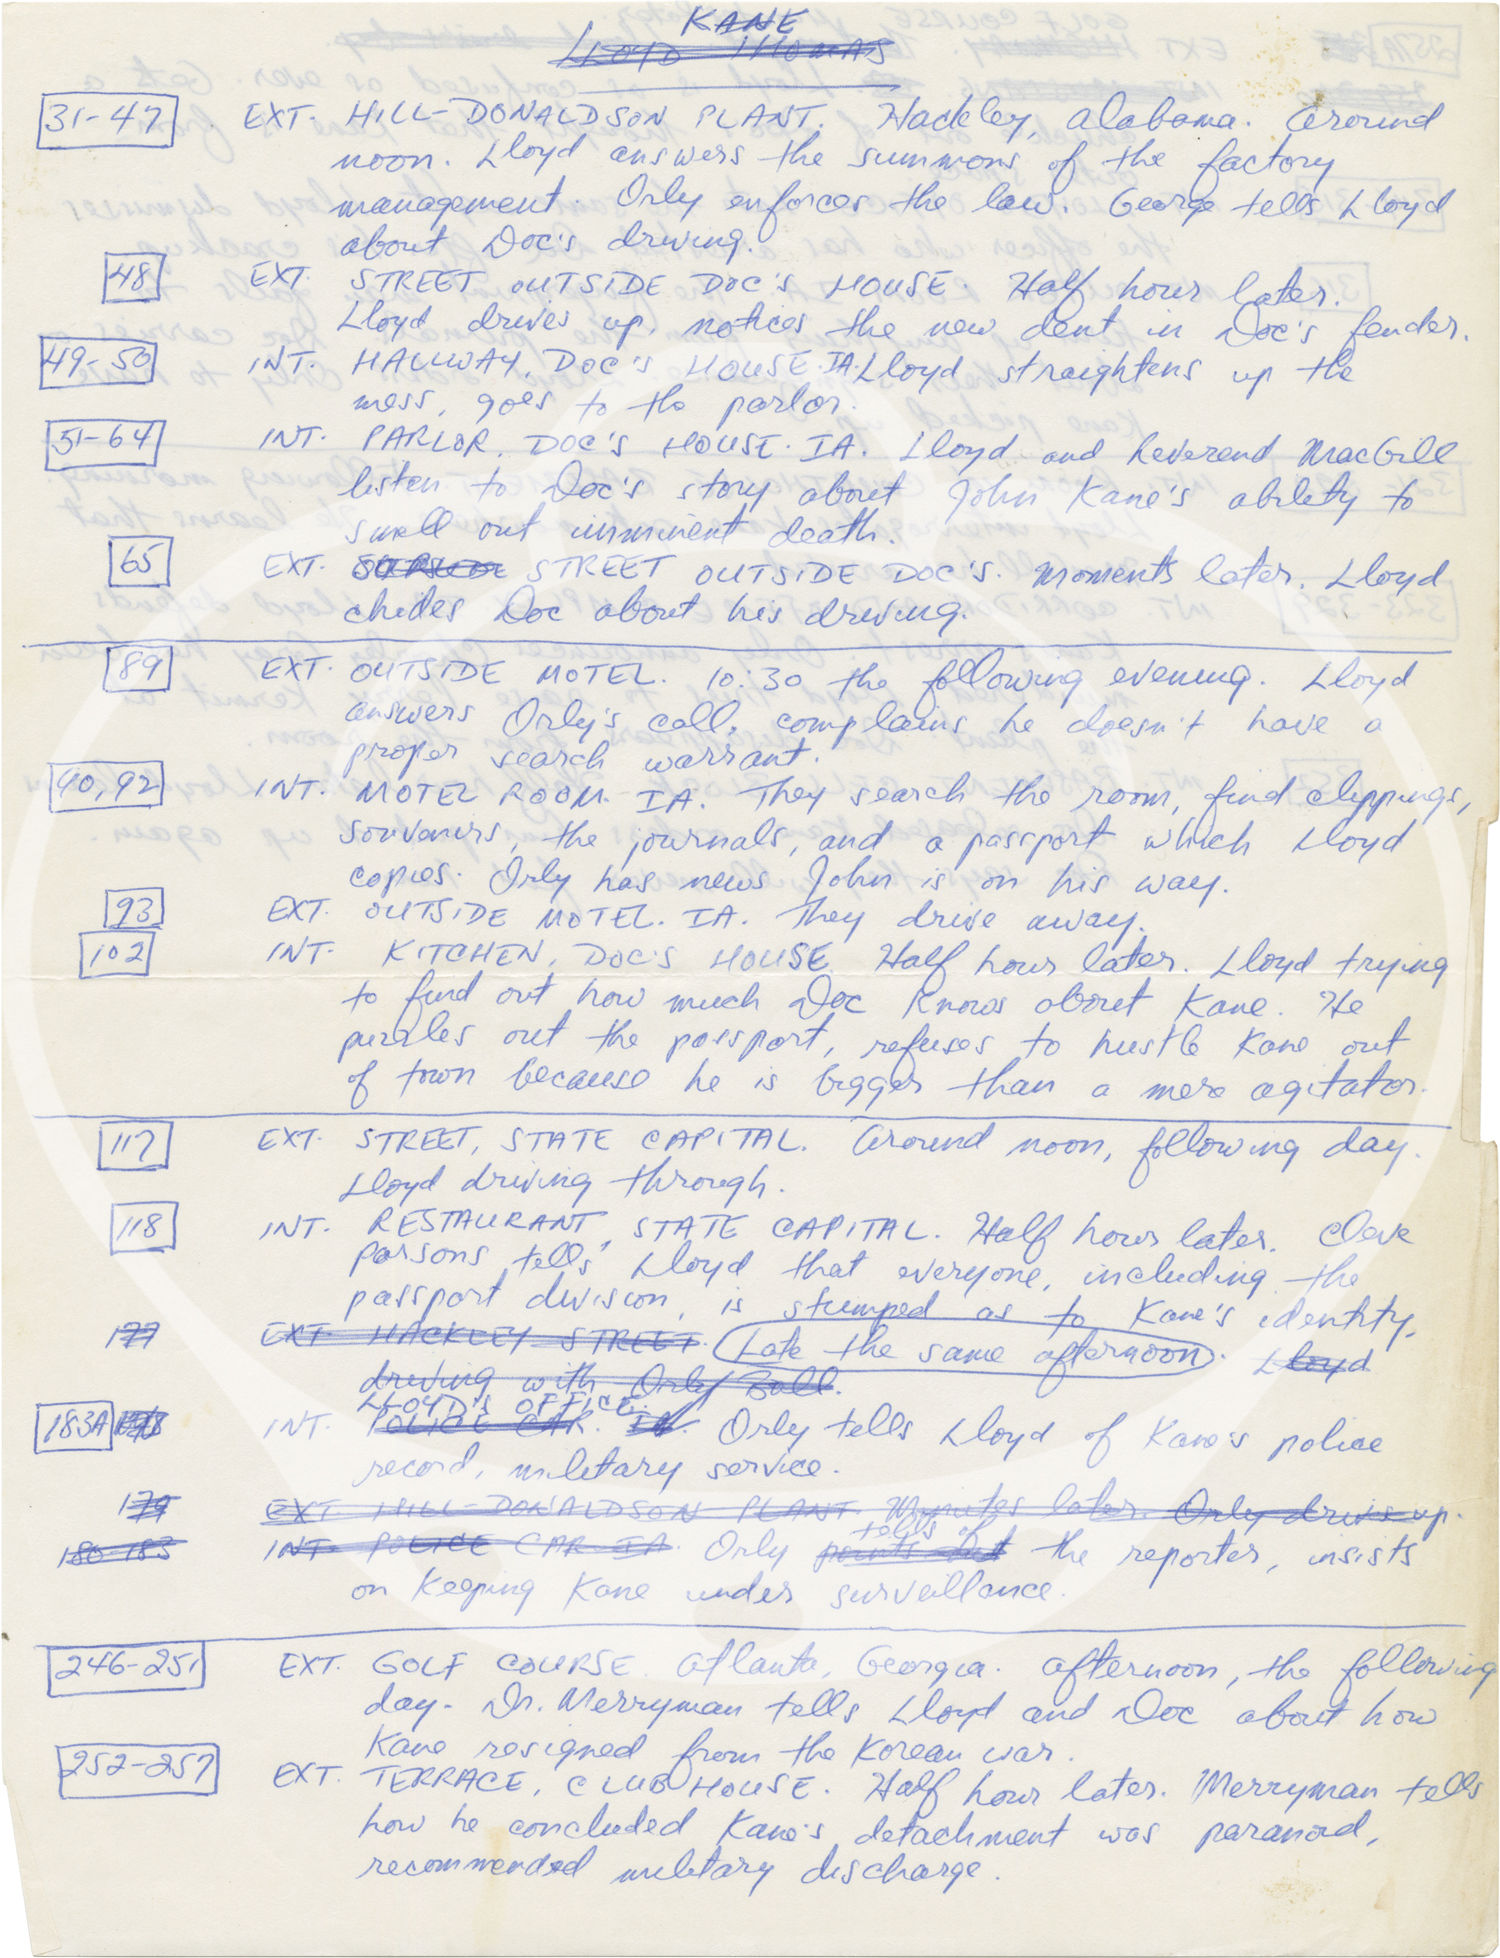 KANE
LLOYD THOMAS
31-47 EXT. HILL-DONALDSON PLANT. Hackley, Alabama. Around
noon. Lloyd answers the summons of the factory
management. Orly enforces the law. George tells Lloyd
about Doc's driving.
48 EXT. STREET OUTSIDE DOC'S HOUSE. Half hour later.
Lloyd drives up, notices the new dent in Doc's fender.
49-50 INT. HALLWAY, DOC'S HOUSE. IA. Lloyd straightens up the
mess, goes to the parlor.
51-64 INT. PARLOR, DOC'S HOUSE. IA. Lloyd and Reverend MacGill
listen to Doc's story about John Kane's ability to
smell out imminent death.
65 EXT. STREET OUTSIDE DOC'S. Moments later. Lloyd
chides Doc about his driving.
89 EXT. OUTSIDE MOTEL. 10:30 the following evening. Lloyd
answers Orly's call, complains he doesn't have a
proper search warrant.
90, 92 INT. MOTEL ROOM. IA. They search the room, find clippings,
souvenirs, the journals, and a passport which Lloyd
copies. Orly has news John is on his way.
93 EXT. OUTSIDE MOTEL. IA. They drive away.
102 INT. KITCHEN, DOC'S HOUSE. Half hour later. Lloyd trying
to find out how much Doc knows about Kane. He
puzzles out the passport, refuses to hustle Kane out
of town because he is bigger than a mere agitator.
117 EXT. STREET, STATE CAPITAL. Around noon, following day.
Lloyd driving through.
118 INT. RESTAURANT, STATE CAPITAL. Half hour later. Cleve
Parsons tells Lloyd that everyone, including the
passport division, is stumped as to Kane's identity.
177 EXT. HACKLEY STREET. Late the same afternoon. Lloyd
driving with Orly Ball.
LLOYD'S OFFICE.
183A 178 INT. POLICE CAR. IA. Orly tells Lloyd of Kane's police
record, military service.
179 EXT. HILL-DONALDSON PLANT. Minutes later. Orly drives up.
tells of
180-183 INT. POLICE CAR. IA. Orly points out the reporter, insists
on keeping Kane under surveillance.
246-251 EXT. GOLF COURSE. Atlanta, Georgia. Afternoon, the following
day. Dr. Merryman tells Lloyd and Doc about how
Kane resigned from the Korean war.
252-257 EXT. TERRACE, CLUBHOUSE. Half hour later. Merryman tells
how he concluded Kane's detachment was paranoid,
recommended military discharge.